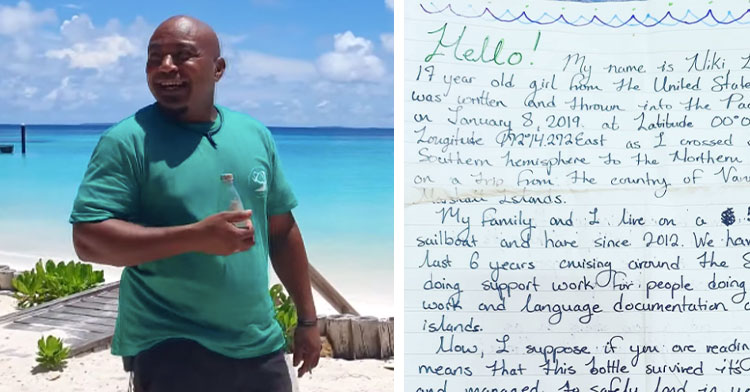 Hello! My name is Niki
17 year old girl from the United
was written and thrown into the
on January 8, 2019. at Latitude
Longitude East as I crossed
Southern hemisphere to the Northern
on a trip from the country of
Marshall Islands.
My Family and I live on a
sailboat and have since 2012. We
last 6 years cruising around the
doing support work for people doing
work and language documentation
islands.
Now, I suppose if you are
means that this bottle survived
and managed to safely land